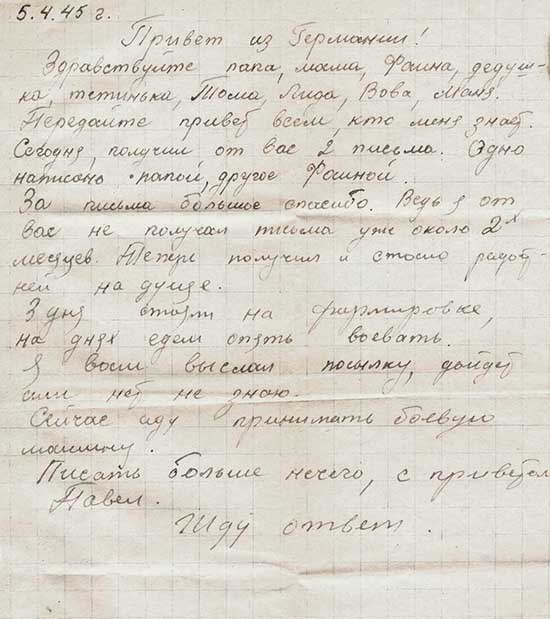 5.4.45 г.
Привет из Германии!
Здравствуйте папа, мама, Фаина, дедуш-
ка, тетинька, Тома, Лида, Вова, Маня.
Передайте привет всем, кто меня знает.
Сегодня, получил от вас 2 письма. Одно
написано папой, другое Фаиной.
За письма большое спасибо. Ведь я от
вас не получал письма уже около 2х
месяцев. Теперь получил и стало радост-
ней на душе.
3 дня стояли на формировке,
на днях едем опять воевать.
Я вам выслал посылку, дойдет
или нет не знаю.
Сейчас иду принимать боевую
машину.
Писать больше нечего, с приветом
Павел.
Жду ответ.